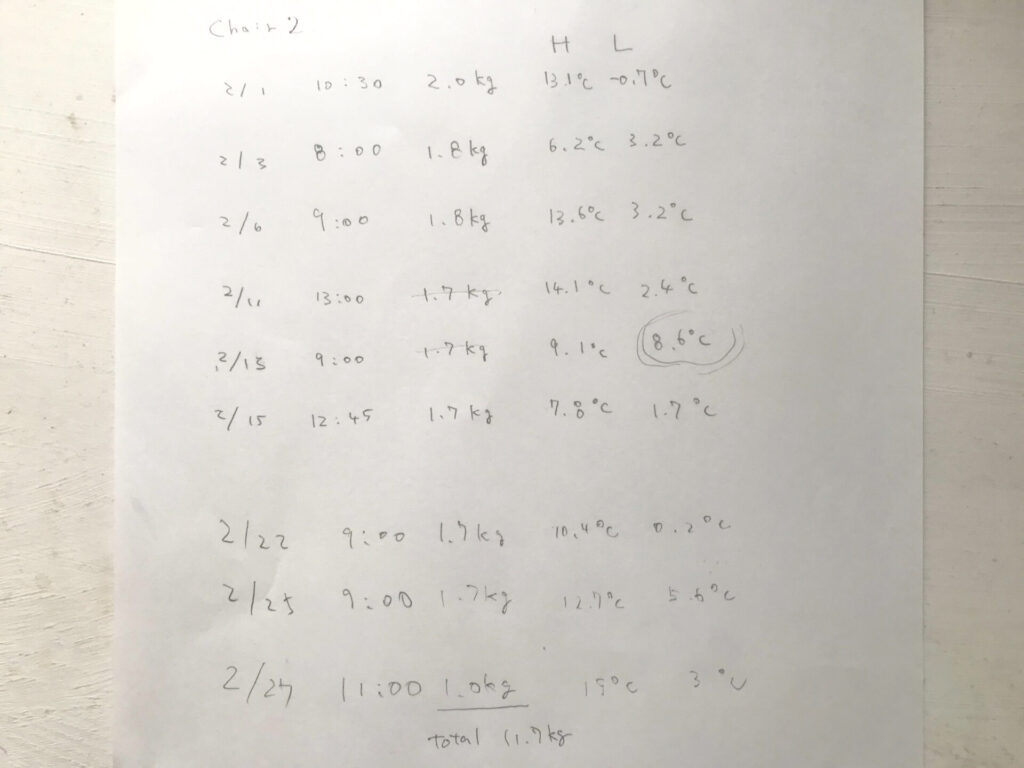 Chair 2
H L
2/1 10:30 2.0kg 13.1°C -0.7°C
2/3 8:00 1.8kg 6.2°C 3.2°C
2/6 9:00 1.8kg 13.6°C 3.2°C
2/11 13:00 1.7kg 14.1°C 2.4°C
2/13 9:00 1.7kg 9.1°C 8.6°C
2/15 12:45 1.7kg 7.8°C 1.7°C
2/22 9:00 1.7kg 10.4°C 0.2°C
2/25 9:00 1.7kg 12.7°C 5.6°C
2/27 11:00 1.0kg 3°C
total 11.7kg